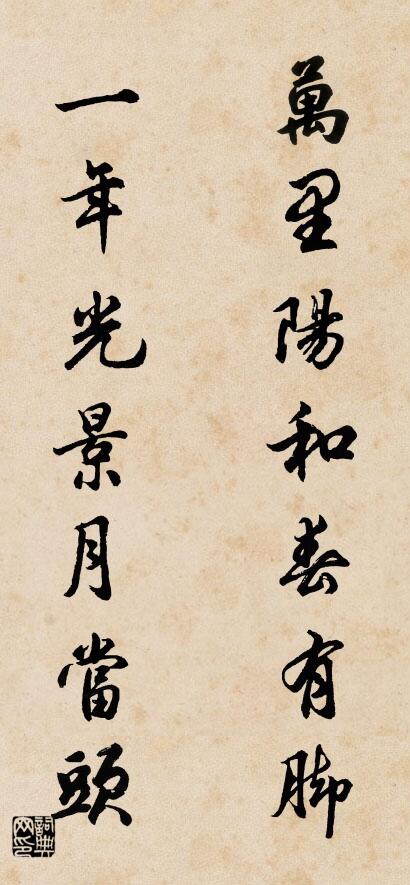 萬里陽和春有脚
一年光景月當頭
詞典網印